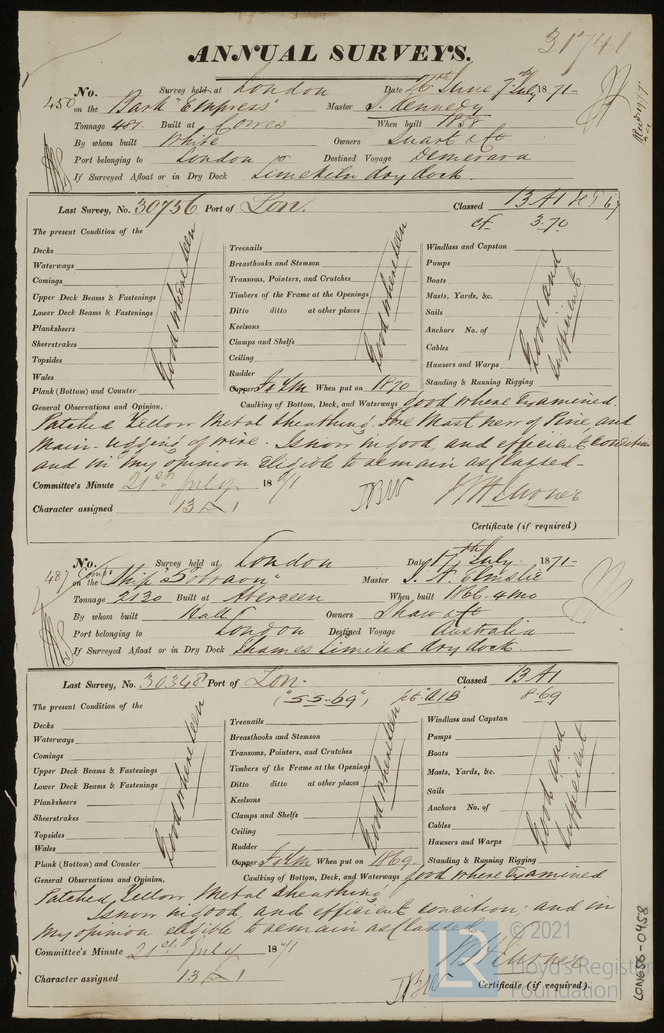 31741
ANNUAL SURVEYS.
No. 450 Survey held at London Date 26th June 7th July 1871-
on the Bark "Empress" Master J. Kennedy
Tonnage 481 Built at Cowes When built 1838
By whom built White Owners Stuart & Co
Port belonging to London Destined Voyage Demerara
If Surveyed Afloat or in Dry Dock Limekiln dry dock.
Last Survey, No. 30756 Port of Lon. Classed 13 A1
cf. 3.70
The present Condition of the
Decks
Waterways
Comings
Upper Deck Beams & Fastenings
Lower Deck Beams & Fastenings
Planksheers
Sheerstrakes
Topsides
Wales
Plank (Bottom) and Counter
Good where seen
Treenails
Breasthooks and Stemson
Transoms, Pointers, and Crutches
Timbers of the Frame at the Openings
Ditto ditto at other places
Keelsons
Clamps and Shelfs
Ceiling
Rudder
Copper When put on 1870
Good where seen
Windlass and Capstan
Pumps
Boats
Masts, Yards, &c.
Sails
Anchors No. of
Cables
Hausers and Warps
Standing & Running Rigging
Good and sufficient
General Observations and Opinion. Caulking of Bottom, Deck, and Waterways Good where Examined.
Patched Yellow Metal Sheathing. Fore Mast new of Pine, and
Main-rigging of wire. Is now in good, and efficient condition
and in my opinion eligible to remain as Classed-
Committee's Minute 21st July 1871
Character assigned 13 A 1
Certificate (if required)
No. 487 Survey held at London Date 17th July 1871-
on the Comp. Ship "Sobraon" Master J. A. Elmslie
Tonnage 2130 Built at Aberdeen When built 1866-4mo
By whom built Hall Owners Shaw & Co
Port belonging to London Destined Voyage Australia
If Surveyed Afloat or in Dry Dock Thames Limited dry dock.
Last Survey, No. 30348 Port of Lon. Classed 13 A1
("S.S.-69") 8.69
The present Condition of the
Decks
Waterways
Comings
Upper Deck Beams & Fastenings
Lower Deck Beams & Fastenings
Planksheers
Sheerstrakes
Topsides
Wales
Plank (Bottom) and Counter
Good where seen
Treenails
Breasthooks and Stemson
Transoms, Pointers, and Crutches
Timbers of the Frame at the Openings
Ditto ditto at other places
Keelsons
Clamps and Shelfs
Ceiling
Rudder
Copper When put on 1869
Good where seen
Windlass and Capstan
Pumps
Boats
Masts, Yards, &c.
Sails
Anchors No. of
Cables
Hausers and Warps
Standing & Running Rigging
Good and sufficient
General Observations and Opinion. Caulking of Bottom, Deck, and Waterways Good where Examined
Patched Yellow Metal Sheathing
Is now in good, and efficient condition, and in
my opinion eligible to remain as Classed
Committee's Minute 21st July 1871
Character assigned 13 A 1
Certificate (if required).
LR © 2021
Lloyd's Register
Foundation
LON656-0458